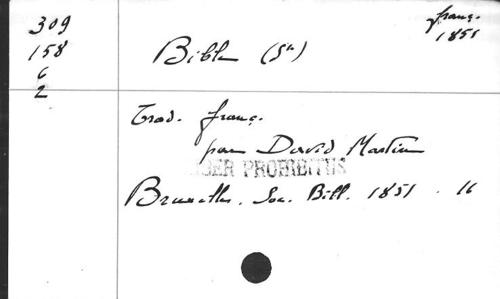 309
158
6
2
franç.
1851
Bible (Ste)
Trad. franç.
par David Martin
LIBER PROHIBITUS
Bruxelles. Soc. Bibl. 1851. 16